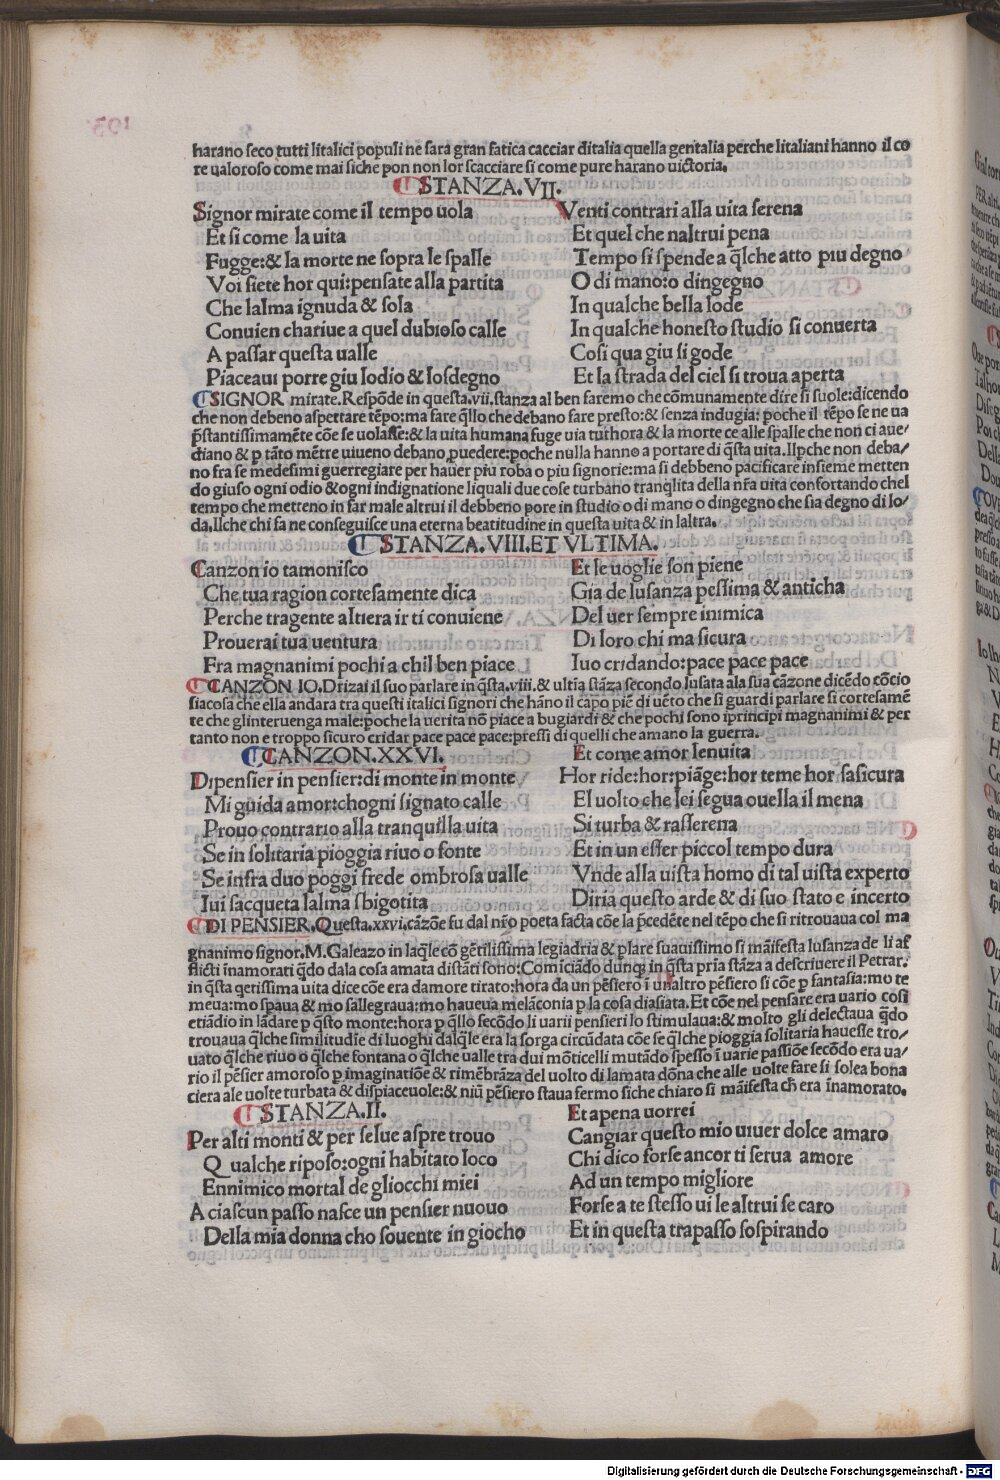 harano seco tutti litalici populi ne sara gran fatica cacciar ditalia quella gentalia perche litaliani hanno il co
re ualoroso come mai siche pon non lor scacciare si come pure harano uictoria.
STANZA.VII.
Signor mirate come il tempo uola
Et si come la uita
Fugge:& la morte ne sopra le spalle
Voi siete hor qui:pensate alla partita
Che lalma ignuda & sola
Conuien chariue a quel dubioso calle
A passar questa ualle
Piaceaui porre giu lodio & losdegno
Venti contrari alla uita serena
Et quel che naltrui pena
Tempo si spende a q̃lche atto piu degno
O di mano:o dingegno
In qualche bella lode
In qualche honesto studio si conuerta
Cosi qua giu si gode
Et la strada del ciel si troua aperta
SIGNOR mirate. Respõde in questa.vii.stanza al ben faremo che cõmunamente dire si suole:dicendo
che non debeno aspettare tẽpo:ma fare q̃llo che debano fare presto:& senza indugia: poche il tẽpo se ne ua
p̃stantissimamẽte cõe se uolasse:& la uita humana fuge uia tuthora & la morte ce alle spalle che non ci aue/
diano & p tãto mẽtre uiueno debano puedere:poche nulla hanno a portare di q̃sta uita.Ilpche non deba/
no fra se medesimi guerregiare per hauer piu roba o piu signorie:ma si debbeno pacificare insieme metten
do giuso ogni odio & ogni indignatione liquali due cose turbano tranq̃lita della nr̃a uita confortando chel
tempo che metteno in far male altrui il debbeno pore in studio o di mano o dingegno che sia degno di lo/
da,Ilche chi fa ne conseguisce una eterna beatitudine in questa uita & in laltra.
STANZA.VIII.ET VLTIMA.
Canzon io tamonisco
Che tua ragion cortesamente dica
Perche tragente altiera ir ti conuiene
Prouerai tua uentura
Fra magnanimi pochi a chil ben piace
Et le uoglie son piene
Gia de lusanza pessima & anticha
Del uer sempre inimica
Di loro chi ma sicura
Iuo cridando:pace pace pace
CANZON IO.Drizai il suo parlare in q̃sta.viii.& ultĩa stãza secondo lusata ala sua cãzone dicẽdo cõcio
siacosa che ella andara tra questi italici signori che hãno il capo piẽ di uẽto che si guardi parlare si cortesamẽ
te che glinteruenga male:poche la uerita nõ piace a bugiardi & che pochi sono iprincipi magnanimi & per
tanto non e troppo sicuro cridar pace pace pace:pressi di quelli che amano la guerra.
CANZON.XXVI.
Dipensier in pensier:di monte in monte
Mi guida amor:chogni signato calle
Prouo contrario alla tranquilla uita
Se in solitaria pioggia riuo o fonte
Se infra duo poggi siede ombrosa ualle
Iui sacqueta lalma sbigotita
Et come amor lenuita
Hor ride:hor:piãge:hor teme hor sasicura
El uolto che lei segua ouella il mena
Si turba & rasserena
Et in un esser piccol tempo dura
Vnde alla uista homo di tal uista experto
Diria questo arde & di suo stato e incerto
DI PENSIER.Questa.xxvi.cãzõe fu dal nr̃o poeta facta cõe la p̃cedẽte nel tẽpo che si ritrouaua col ma
gnanimo signor.M.Galeazo in laq̃le cõ gẽtilissima legiadria & plare suauissimo si mãifesta lusanza de li af
flicti ĩnamorati q̃do dala cosa amata distãti sono:Comiciãdo dunq; in q̃sta pria stãza a descriuere il Petrar.
in q̃sta qetissima uita dice cõe era damore tirato:hora da un pẽsiero ĩ unaltro pẽsiero si cõe p fantasia:mo te
meua:mo spaua & mo sallegraua:mo haueua melãconia p la cosa diasiata.Et cõe nel pensare era uario cosi
etiãdio in lãdare p q̃sto monte:hora p q̃llo secõdo li uarii pensieri lo stimulaua:& molto gli delectaua q̃do
trouaua q̃lche similitudĩe di luoghi dalq̃le era la sorga circũdata cõe se q̃lche pioggia solitaria hauesse tro/
uato q̃lche riuo o q̃lche fontana o q̃lche ualle tra dui mõticelli mutãdo spesso ĩ uarie passiõe secõdo era ua/
rio il pẽsier amoroso p imaginatiõe & rimẽbrãza del uolto di lamata dõna che alle uolte fare si solea bona
ciera ale uolte turbata & dispiaceuole:& niũ pẽsiero staua fermo siche chiaro si mãifesta ch̃ era ĩnamorato.
STANZA.II.
Per alti monti & per selue aspre trouo
Qualche riposo:ogni habitato loco
Ennimico mortal de gliocchi miei
A ciascun passo nasce un pensier nuouo
Della mia donna cho souente in giocho
Et apena uorrei
Cangiar questo mio uiuer dolce amaro
Chi dico forse ancor ti serua amore
Ad un tempo migliore
Forse a te stesso ui le altrui se caro
Et in questa trapasso sospirando
Digitalisierung gefördert durch die Deutsche Forschungsgemeinschaft - DFG